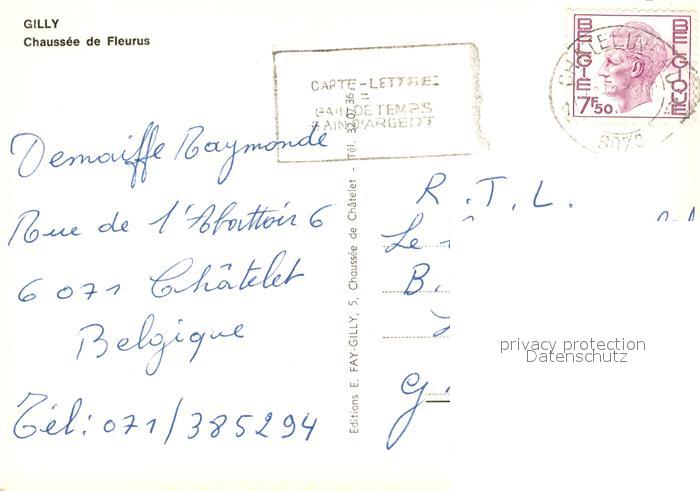 GILLY
Chaussée de Fleurus
CARTE-LETTRE
=
GAIN DE TEMPS
GAIN D'ARGENT
BELGIE
BELGIQUE
7F50
6070
Demaiffe Raymonde
Rue de l'Abattoir 6
6071 Châtelet
Belgique
Tél: 071/385294
Editions E. FAY-GILLY, 5, Chaussée de Châtelet - Tél. 32.07.36
R.T.L.
Le
B.
privacy protection
Datenschutz